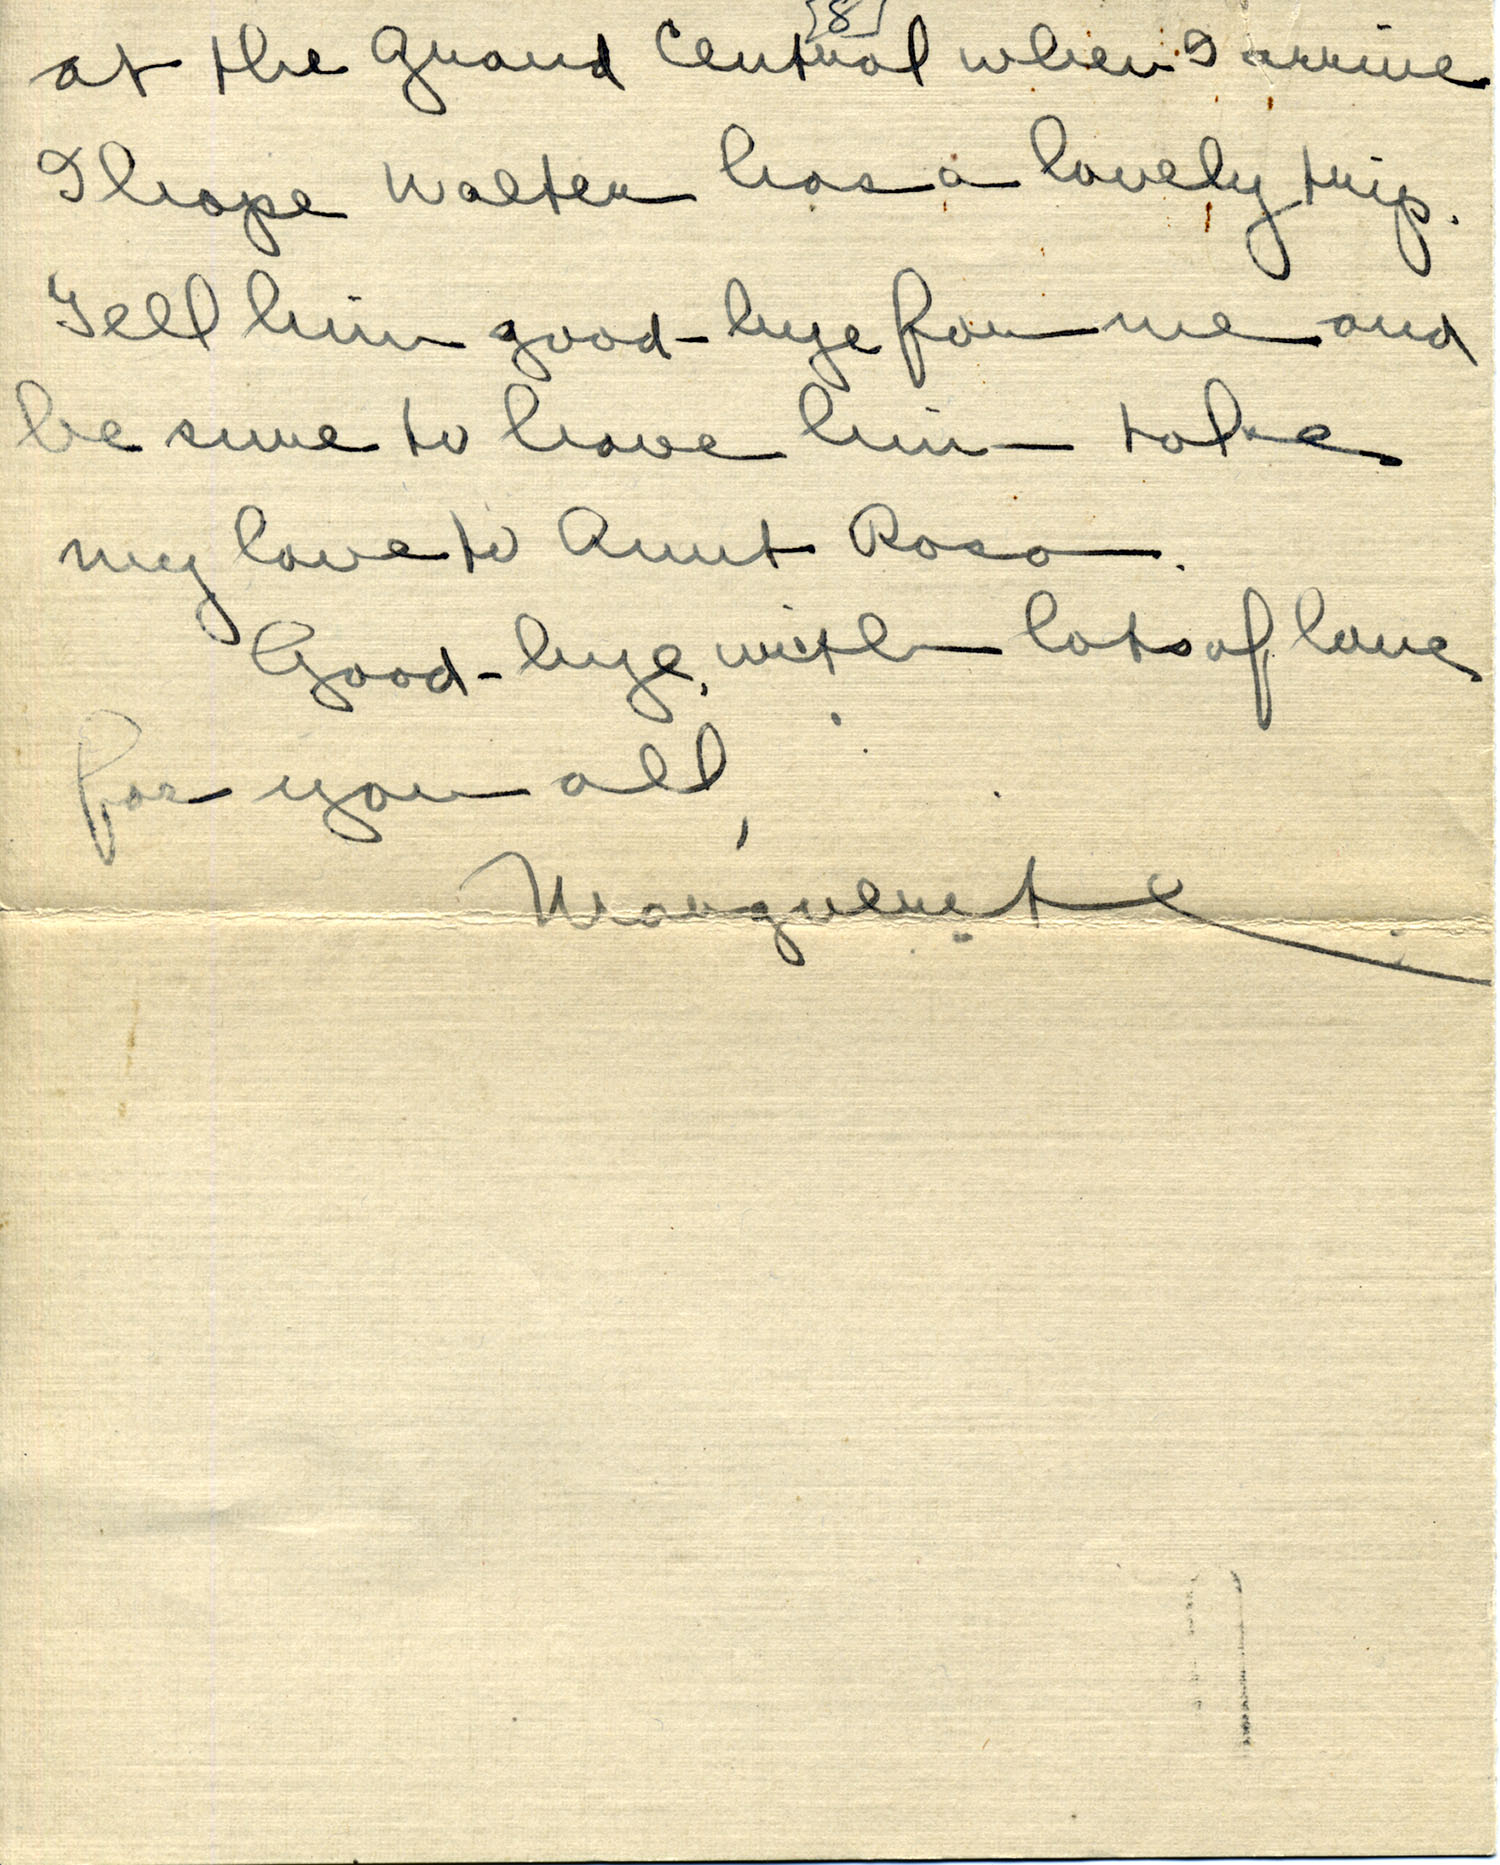 [8]
at the Grand Central when I arrive
I hope Walter has a lovely trip.
Tell him good-bye for me and
be sure to have him take
my love to Aunt Rosa.
Good-bye, with lots of love
for you all,
Marguerite